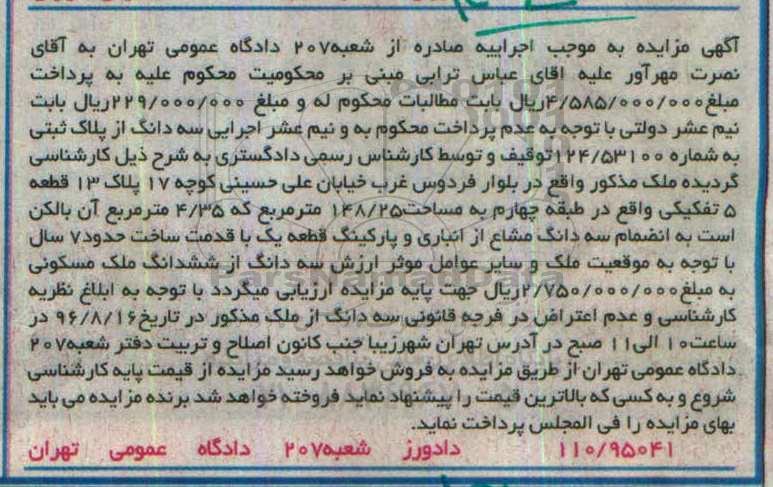 آگهی مزایده به موجب اجراییه صادره از شعبه۲۰۷ دادگاه عمومی تهران به آقای
نصرت مهرآور علیه اقای عباس ترابی مبنی بر محکومیت محکوم علیه به پرداخت
مبلغ۴/۵۸۵/۰۰۰/۰۰۰ریال بابت مطالبات محکوم له و مبلغ ۲۲۹/۰۰۰/۰۰۰ریال بابت
نیم عشر دولتی با توجه به عدم پرداخت محکوم به و نیم عشر اجرایی سه دانگ از پلاک ثبتی
به شماره ۱۲۴/۵۳۱۰۰توقیف و توسط کارشناس رسمی دادگستری به شرح ذیل کارشناسی
گردیده ملک مذکور واقع در بلوار فردوس غرب خیابان علی حسینی کوچه ۱۷ پلاک ۱۳ قطعه
۵ تفکیکی واقع در طبقه چهارم به مساحت۱۴۸/۲۵ مترمربع که ۴/۳۵ مترمربع آن بالکن
است به انضمام سه دانگ مشاع از انباری و پارکینگ قطعه یک با قدمت ساخت حدود۷ سال
با توجه به موقعیت ملک و سایر عوامل موثر ارزش سه دانگ از ششدانگ ملک مسکونی
به مبلغ۲/۷۵۰/۰۰۰/۰۰۰ریال جهت پایه مزایده ارزیابی میگردد با توجه به ابلاغ نظریه
کارشناسی و عدم اعتراض در فرجه قانونی سه دانگ از ملک مذکور در تاریخ۹۶/۸/۱۶ در
ساعت۱۰ الی۱۱ صبح در آدرس تهران شهرزیبا جنب کانون اصلاح و تربیت دفتر شعبه۲۰۷
دادگاه عمومی تهران از طریق مزایده به فروش خواهد رسید مزایده از قیمت پایه کارشناسی
شروع و به کسی که بالاترین قیمت را پیشنهاد نماید فروخته خواهد شد برنده مزایده می باید
بهای مزایده را فی المجلس پرداخت نماید.
۱۱۰/۹۵۰۴۱ دادورز شعبه۲۰۷ دادگاه عمومی تهران